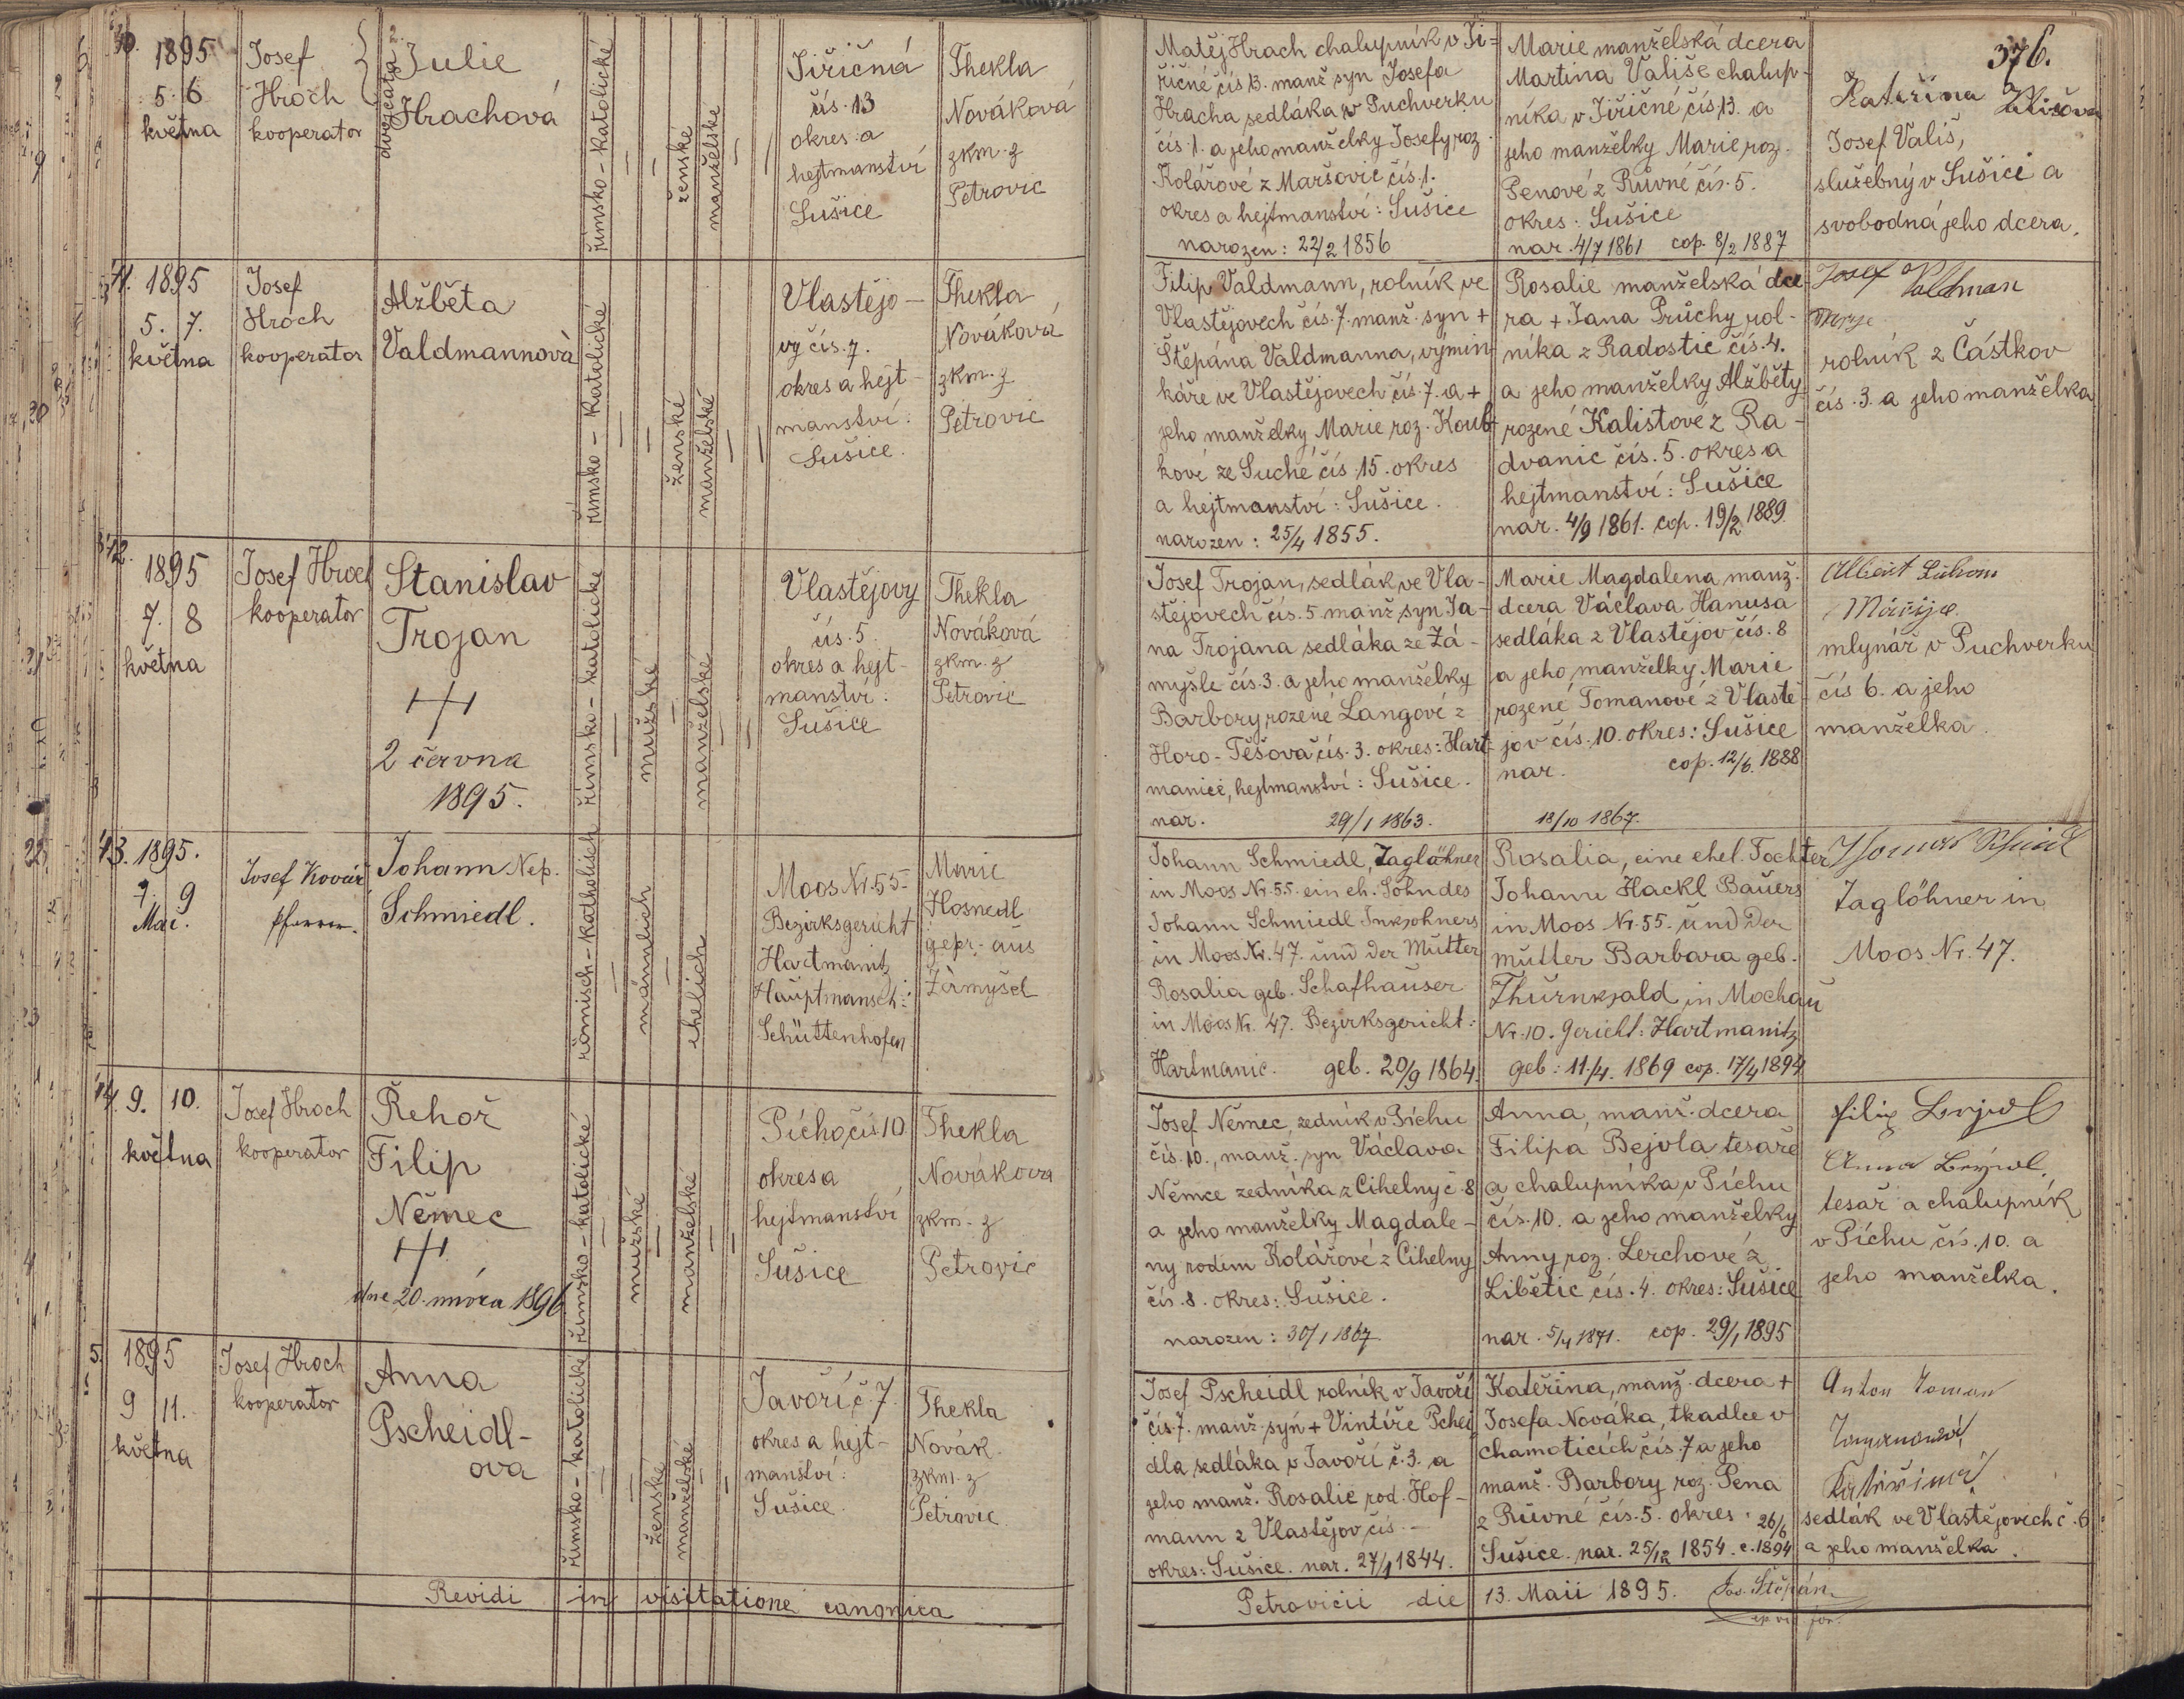 376.
70.
1895
5. 6
května
Josef
Hroch
kooperator
2.
dvojčata
Julie
Hrachová
římsko-katolické
ženské
manželské
Jiřičná
čís. 13
okres: a
hejtmanství
Sušice
Thekla
Nováková
zkm. z
Petrovic
Matěj Hrach chalupník v Ji-
řičné čís 13. manž syn Josefa
Hracha sedláka v Puchverku
čís. 1. a jeho manželky Josefy roz.
Kolářové z Maršovic čís. 1.
okres a hejtmanství: Sušice
narozen: 22/2 1856
Marie manželská dcera
Martina Vališe chalup-
níka v Jiřičné čís 13. a
jeho manželky Marie roz.
Penové z Růvné čís. 5.
okres: Sušice
nar. 4/7 1861 cop. 8/2 1887
Kateřina Vališova
Josef Vališ,
služebný v Sušici a
svobodná jeho dcera.
71. 1895
5. 7.
května
Josef
Hroch
kooperator
Alžběta
Valdmannová
římsko-katolické
ženské
manželské
Vlastějo-
vy čís. 7.
okres a hejt-
manství:
Sušice.
Thekla
Nováková
zkm. z
Petrovic
Filip Valdmann, rolník ve
Vlastějovech čís. 7. manž. syn +
Štěpána Valdmanna, výmin-
káře ve Vlastějovech čís. 7. a +
jeho manželky Marie roz. Koub-
kové ze Suché čís. 15. okres
a hejtmanství: Sušice.
narozen: 25/4 1855.
Rosalie manželská dce-
ra + Jana Průchy rol-
níka z Radostic čís. 4.
a jeho manželky Alžběty
rozené Kalistové z Ra-
dvanic čís. 5. okres a
hejtmanství: Sušice
nar. 4/9 1861. cop. 19/2 1889.
Josef Valdman
rolník z Částkov
čís. 3. a jeho manželka
72.
1895
7. 8
května
Josef Hroch
kooperator
Stanislav
Trojan
2 června
1895.
římsko-katolické
mužské
manželské
Vlastějovy
čís. 5.
okres a hejt-
manství:
Sušice
Thekla
Nováková
zkm. z
Petrovic
Josef Trojan, sedlák ve Vla-
stějovech čís. 5. manž. syn Ja-
na Trojana sedláka ze Zá-
myšle čís. 3. a jeho manželky
Barbory rozené Langové z
Horo-Těšova čís. 3. okres: Hart-
manice, hejtmanství: Sušice.
nar. 29/1 1863.
Marie Magdalena, manž.
dcera Václava Hanusa
sedláka z Vlastějov čís. 8
a jeho manželky Marie
rozené Tomanové z Vlastě-
jov čís. 10. okres: Sušice
nar. cop. 12/6. 1888
18/10 1867.
Albert
mlynář v Puchverku
čís 6. a jeho
manželka.
73. 1895.
7. 9
Mai.
Josef Kovář
Pfarrer.
Johann Nep.
Schmiedl.
römisch-katholisch
männlich
ehelich
Moos Nr. 55.
Bezirksgericht
Hartmanitz
Hauptmansch:
Schüttenhofen
Marie
Hosnedl
gepr. aus
Zámyšel
Johann Schmiedl, Taglöhner
in Moos Nr. 55. ein eh. Sohn des
Johann Schmiedl Inwohners
in Moos Nr. 47. und der Mutter
Rosalia geb. Schafhauser
in Moos Nr. 47. Bezirksgericht:
Hartmanic. geb. 20/9 1864.
Rosalia, eine ehel. Tochter
Johann Hackl Bauers
in Moos Nr. 55. und der
mutter Barbara geb.
Thurnwald in Mochau
Nr. 10. Gericht: Hartmanitz
geb: 11/4. 1869 cop. 17/4 1894
Taglöhner in
Moos Nr. 47.
74. 9. 10.
května
Josef Hroch
kooperator
Řehoř
Filip
Němec
dne 20. února 1896
římsko-katolické
mužské
manželské
Pícho čís 10
okres a
hejtmanství
Sušice
Thekla
Nováková
zkm. z
Petrovic
Josef Němec, zedník v Píchu
čís. 10., manž. syn Václava
Němce zedníka z Cihelny č. 8
a jeho manželky Magdale-
ny rodem Kolářové z Cihelny
čís. 8. okres: Sušice.
narozen: 30/1 1867
Anna, manž. dcera
Filipa Bejvla tesaře
a chalupníka v Píchu
čís. 10. a jeho manželky
Anny roz. Lerchové z
Libětic čís. 4. okres: Sušice
nar. 5/4 1871. cop. 29/1 1895
Filip Bejvl
Anna Bejvl,
tesař a chalupník
v Píchu čís. 10. a
jeho manželka.
5.
1895
9 11.
května
Josef Hroch
kooperator
Anna
Pscheidl-
ova
římsko-katolické
ženské
manželské
Javoří č. 7
okres a hejt-
manství:
Sušice.
Thekla
Novák.
zkm. z
Petrovic
Josef Pscheidl rolník v Javoří
čís. 7. manž. syn + Vintíře Pchei
dla sedláka v Javoří č. 3. a
jeho manž. Rosalie rod. Hof-
mann z Vlastějov čís. -
okres: Sušice. nar. 27/1 1844.
Kateřina, manž. dcera +
Josefa Nováka, tkadlce v
chamoticích čís. 7 a jeho
manž. Barbory roz. Pena
z Růvné čís. 5. okres 26/6
Sušice. nar. 25/12 1854. c. 1894
Anton Toman
Tomanová
Kateřina
sedlák ve Vlastějovech č. 6
a jeho manželka.
Revidi in visitatione canonica
Petrovicii die 13. Maii 1895. Jos. Štěpán